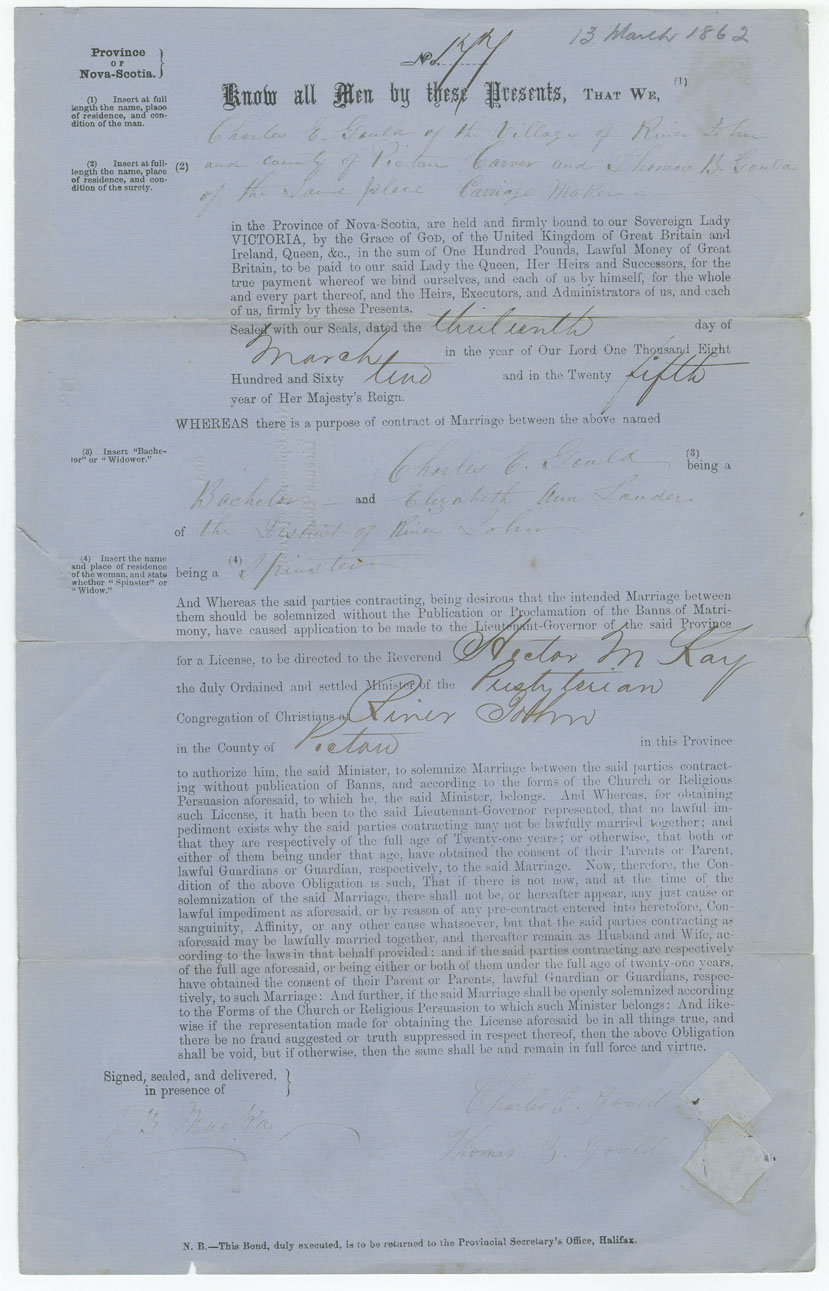 13 March 1862
Province
OF
Nova-Scotia.
No. 177
Know all Men by these Presents, THAT WE, (1)
(1) Insert at full
length the name, place
of residence, and con-
dition of the man.
Charles E. Gould of the Village of River John
(2) Insert at full-
length the name, place
of residence, and con-
dition of the surety.
(2) and county of Pictou Carver and Thomas B. Gould
of the Same place Carriage Maker
in the Province of Nova-Scotia, are held and firmly bound to our Sovereign Lady
VICTORIA, by the Grace of GOD, of the United Kingdom of Great Britain and
Ireland, Queen, &c., in the sum of One Hundred Pounds, Lawful Money of Great
Britain, to be paid to our said Lady the Queen, Her Heirs and Successors, for the
true payment whereof we bind ourselves, and each of us by himself, for the whole
and every part thereof, and the Heirs, Executors, and Administrators of us, and each
of us, firmly by these Presents.
Sealed with our Seals, dated the thirteenth day of
March in the year of Our Lord One Thousand Eight
Hundred and Sixty two and in the Twenty fifth
year of Her Majesty's Reign.
WHEREAS there is a purpose of contract of Marriage between the above named
(3) Insert "Bache-
lor" or "Widower."
Charles E. Gould (3) being a
Bachelor and Elizabeth Ann Lauder
of the District of River John
(4) Insert the name
and place of residence
of the woman, and state
whether "Spinster" or
"Widow."
being a (4) Spinster
And Whereas the said parties contracting, being desirous that the intended Marriage between
them should be solemnized without the Publication or Proclamation of the Banns of Matri-
mony, have caused application to be made to the Lieutenant-Governor of the said Province
for a License, to be directed to the Reverend Hector McKay
the duly Ordained and settled Minister of the Presbyterian
Congregation of Christians at River John
in the County of Pictou in this Province
to authorize him, the said Minister, to solemnize Marriage between the said parties contract-
ing without publication of Banns, and according to the forms of the Church or Religious
Persuasion aforesaid, to which he, the said Minister, belongs. And Whereas, for obtaining
such License, it hath been to the said Lieutenant-Governor represented, that no lawful im-
pediment exists why the said parties contracting may not be lawfully married together; and
that they are respectively of the full age of Twenty-one years; or otherwise, that both or
either of them being under that age, have obtained the consent of their Parents or Parent,
lawful Guardians or Guardian, respectively, to the said Marriage. Now, therefore, the Con-
dition of the above Obligation is such, That if there is not now, and at the time of the
solemnization of the said Marriage, there shall not be, or hereafter appear, any just cause or
lawful impediment as aforesaid, or by reason of any pre-contract entered into heretofore, Con-
sanguinity, Affinity, or any other cause whatsoever, but that the said parties contracting as
aforesaid may be lawfully married together, and thereafter remain as Husband and Wife, ac-
cording to the laws in that behalf provided: and if the said parties contracting are respectively
of the full age aforesaid, or being either or both of them under the full age of twenty-one years,
have obtained the consent of their Parent or Parents, lawful Guardian or Guardians, respec-
tively, to such Marriage: And further, if the said Marriage shall be openly solemnized according
to the Forms of the Church or Religious Persuasion to which such Minister belongs: And like-
wise if the representation made for obtaining the License aforesaid be in all things true, and
there be no fraud suggested or truth suppressed in respect thereof, then the above Obligation
shall be void, but if otherwise, then the same shall be and remain in full force and virtue.
Signed, sealed, and delivered,
in presence of
Charles E. Gould
Thomas B. Gould
N. B.—This Bond, duly executed, is to be returned to the Provincial Secretary's Office, Halifax.